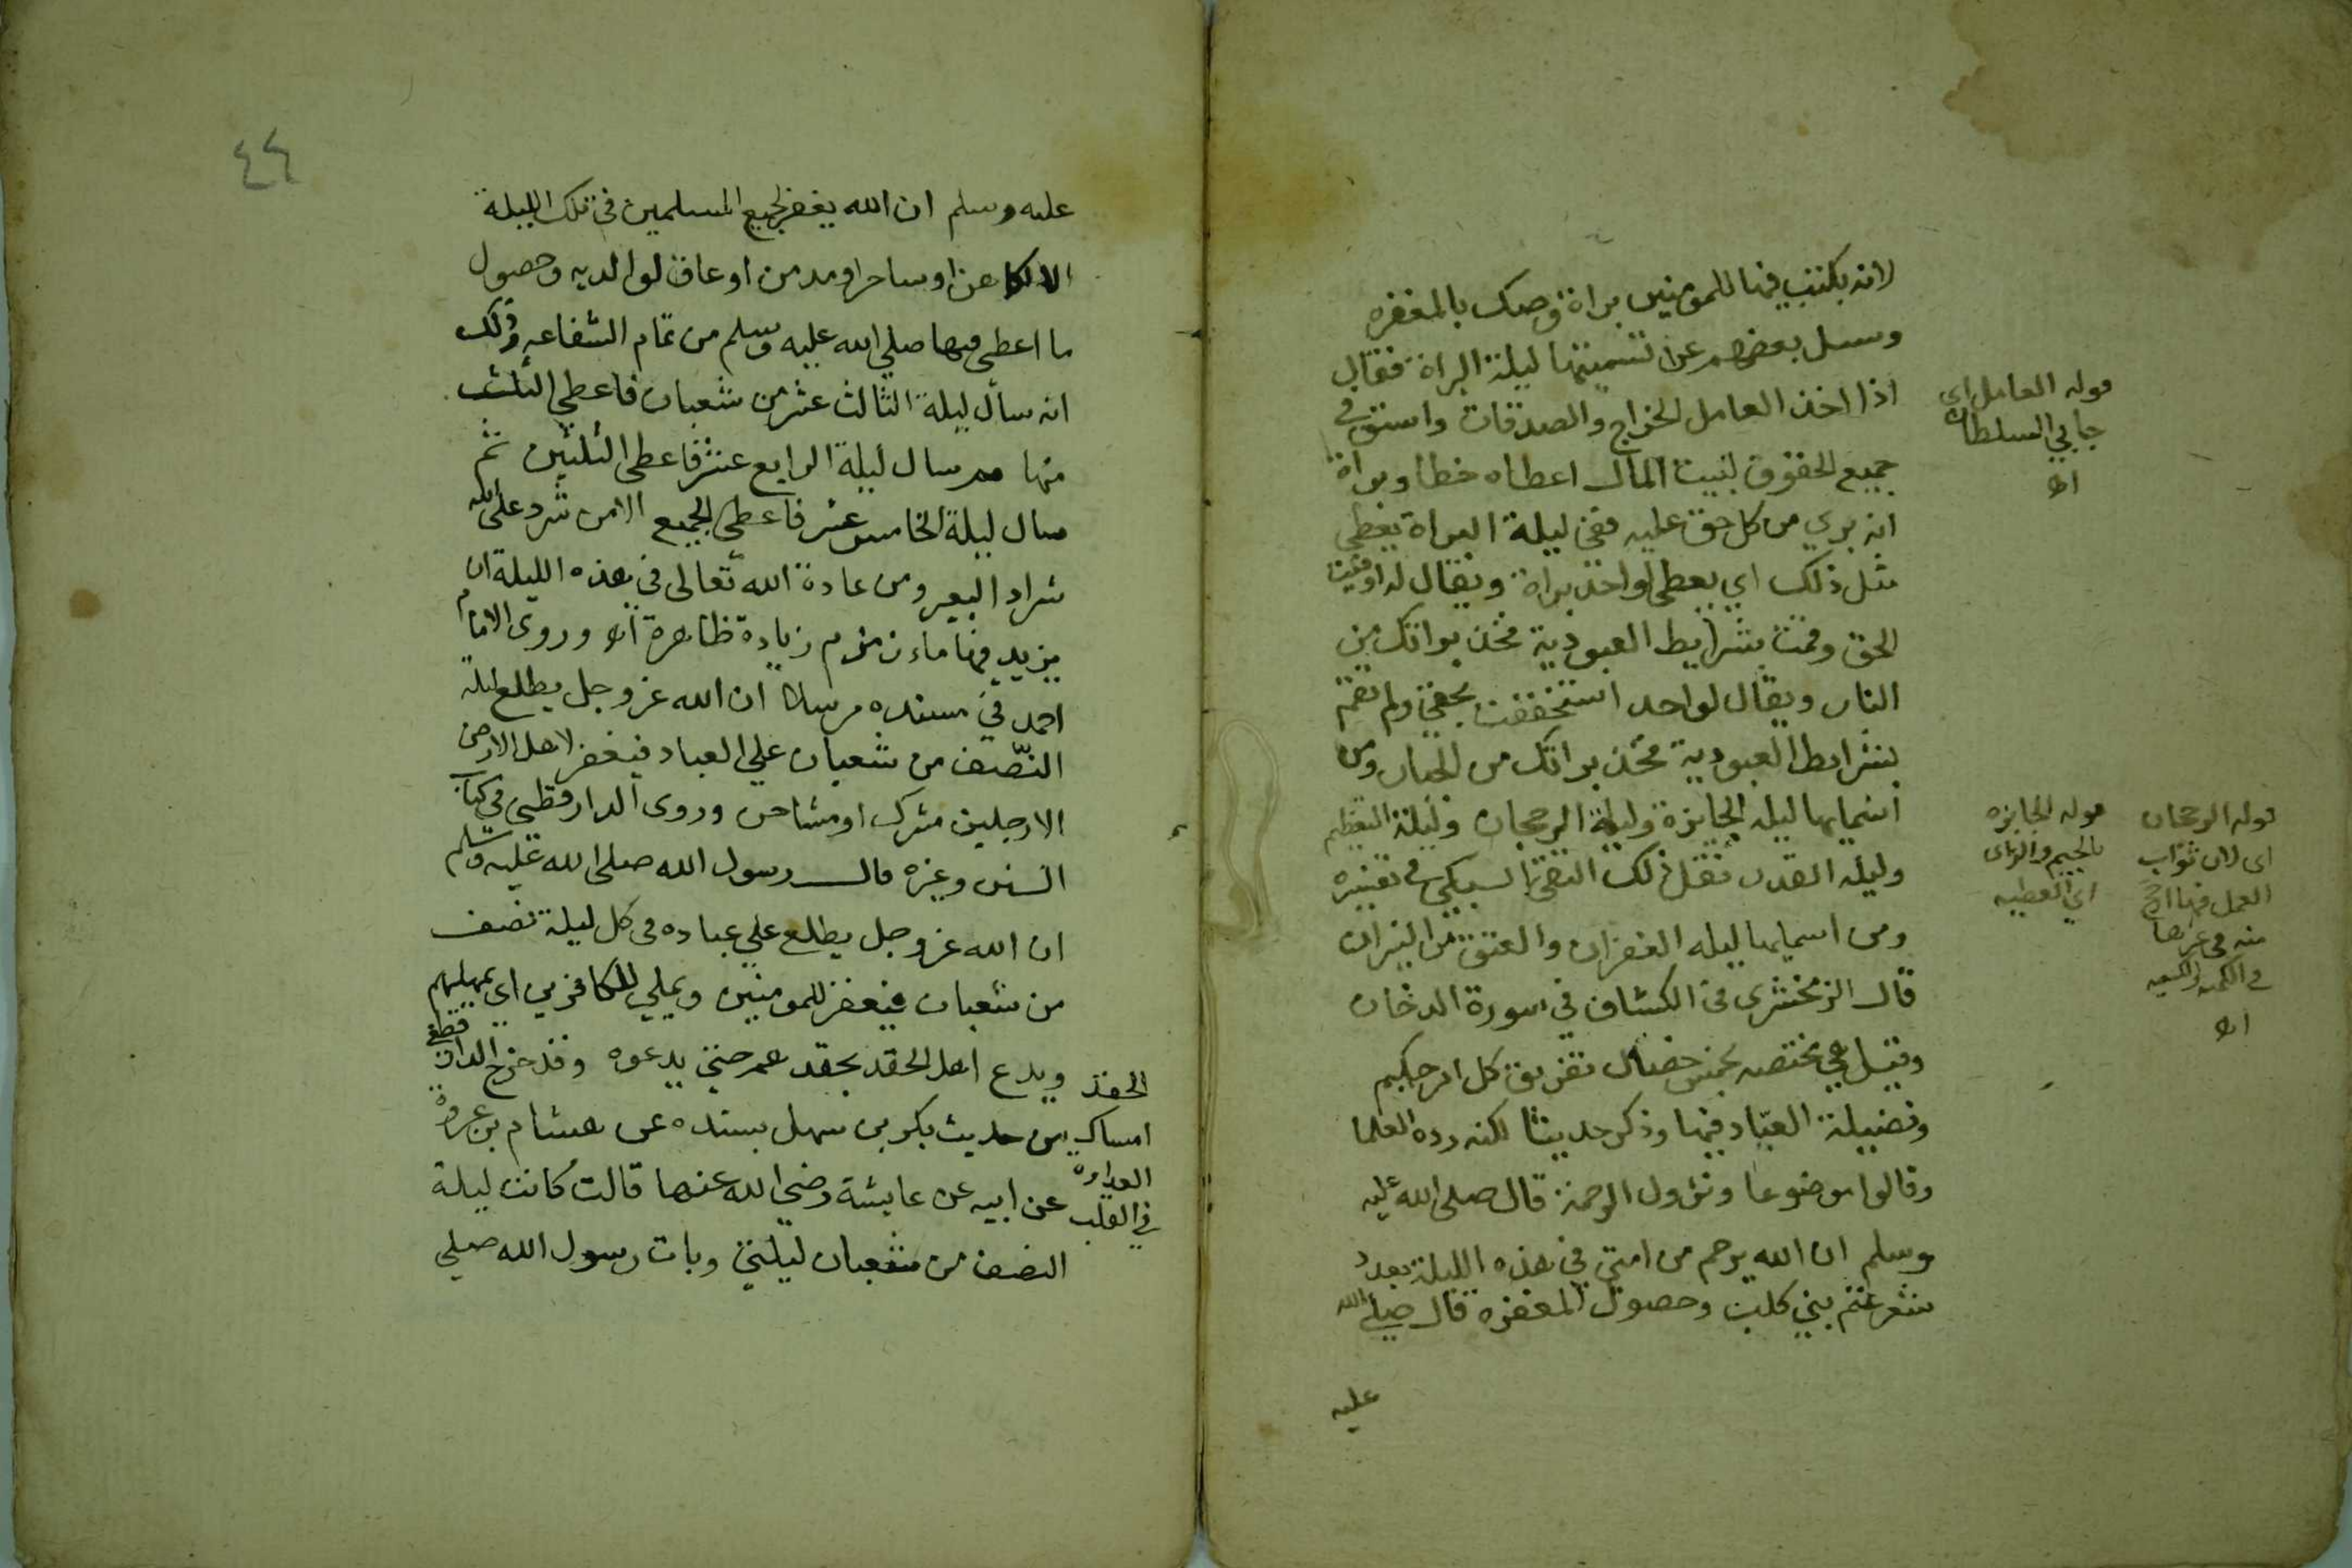 لانه يكتب فيها للمومنين براة وصك بالمغفره
وسىل بعضهم عن تسميتها ليلة البراة فقال
اذا اخذ العامل الخراج والصدقات واستوفي
جميع الحقوق لبيت المال اعطاه خطا وبراة
انه بري من كل حق عليه ففي ليلة البراة يعطي
مثل ذلك اي يعطي لواحد براة ويقال له اوفيت
الحق وقمت بشرايط العبودية فخذ براتك من
النار ويقال لواحد استخففت بحقي ولم تقم
بشرايط العبودية فخذ براتك من الجنان ومن
اسمايها ليله الجايزة وليلة الرجحان وليلة التعظيم
وليله القدر نقل ذلك التقي السبكي في تفسيره
ومن اسمايها ليله الغفران والعتق من النيران
قال الزمخشري في الكشاف في سورة الدخان
وقيل هي مختصه بخمس خصال تفريق كل امر حكيم
وفضيلة العباد فيها وذكر حديثا لكنه رده العلما
وقالوا موضوعا ونزول الرحمة قال صلى الله عليه
وسلم ان الله يرحم من امتي في هذه الليلة بعدد
شعر غنم بني كلب وحصول المغفره قال صلي الله
عليه
قوله العامل اي
جابي السلطان
اه
قوله الجايزه
بالجيم والزاى
اي العطيه
قوله الرجحان
اى لان ثواب
العمل فيها ارجح
منه في غيرها
في الكميه والكيفيه
اه
٤٤
عليه وسلم ان الله يغفر لجميع المسلمين في تلك الليلة
الا لكاهن او ساحر او مدمن او عاق لوالديه وحصول
ما اعطي فيها صلي الله عليه وسلم من تمام الشفاعه وذلك
انه سأل ليلة الثالث عشر من شعبان فاعطي الثلث
منها ثم سال ليلة الرابع عشر فاعطي الثلثين ثم
سال ليلة الخامس عشر فاعطي الجميع الا من شرد على الله
شراد البعير ومن عادة الله تعالى في هذه الليلة ان
يزيد فيها ماء زمزم زيادة ظاهرة اه وروى الامام
احمد في مسنده مرسلا ان الله عز وجل يطلع ليلة
النصف من شعبان علي العباد فيغفر لاهل الارض
الا رجلين مشرك او مشاحن وروى الدارقطني في كتاب
السنن وغيره قال رسول الله صلى الله عليه وسلم
ان الله عز وجل يطلع علي عباده في كل ليلة نصف
من شعبان فيغفر للمومنين ويملي للكافرين اي يمهلهم
ويدع اهل الحقد بحقدهم حتي يدعوه وقد خرج الدارقطني
من حديث بكر بن سهل بسنده عن هشام بن عروة
عن ابيه عن عايشة رضي الله عنها قالت كانت ليلة
النصف من شعبان ليلتي وبات رسول الله صلي
الحقد
امساك
العداوه
في القلب